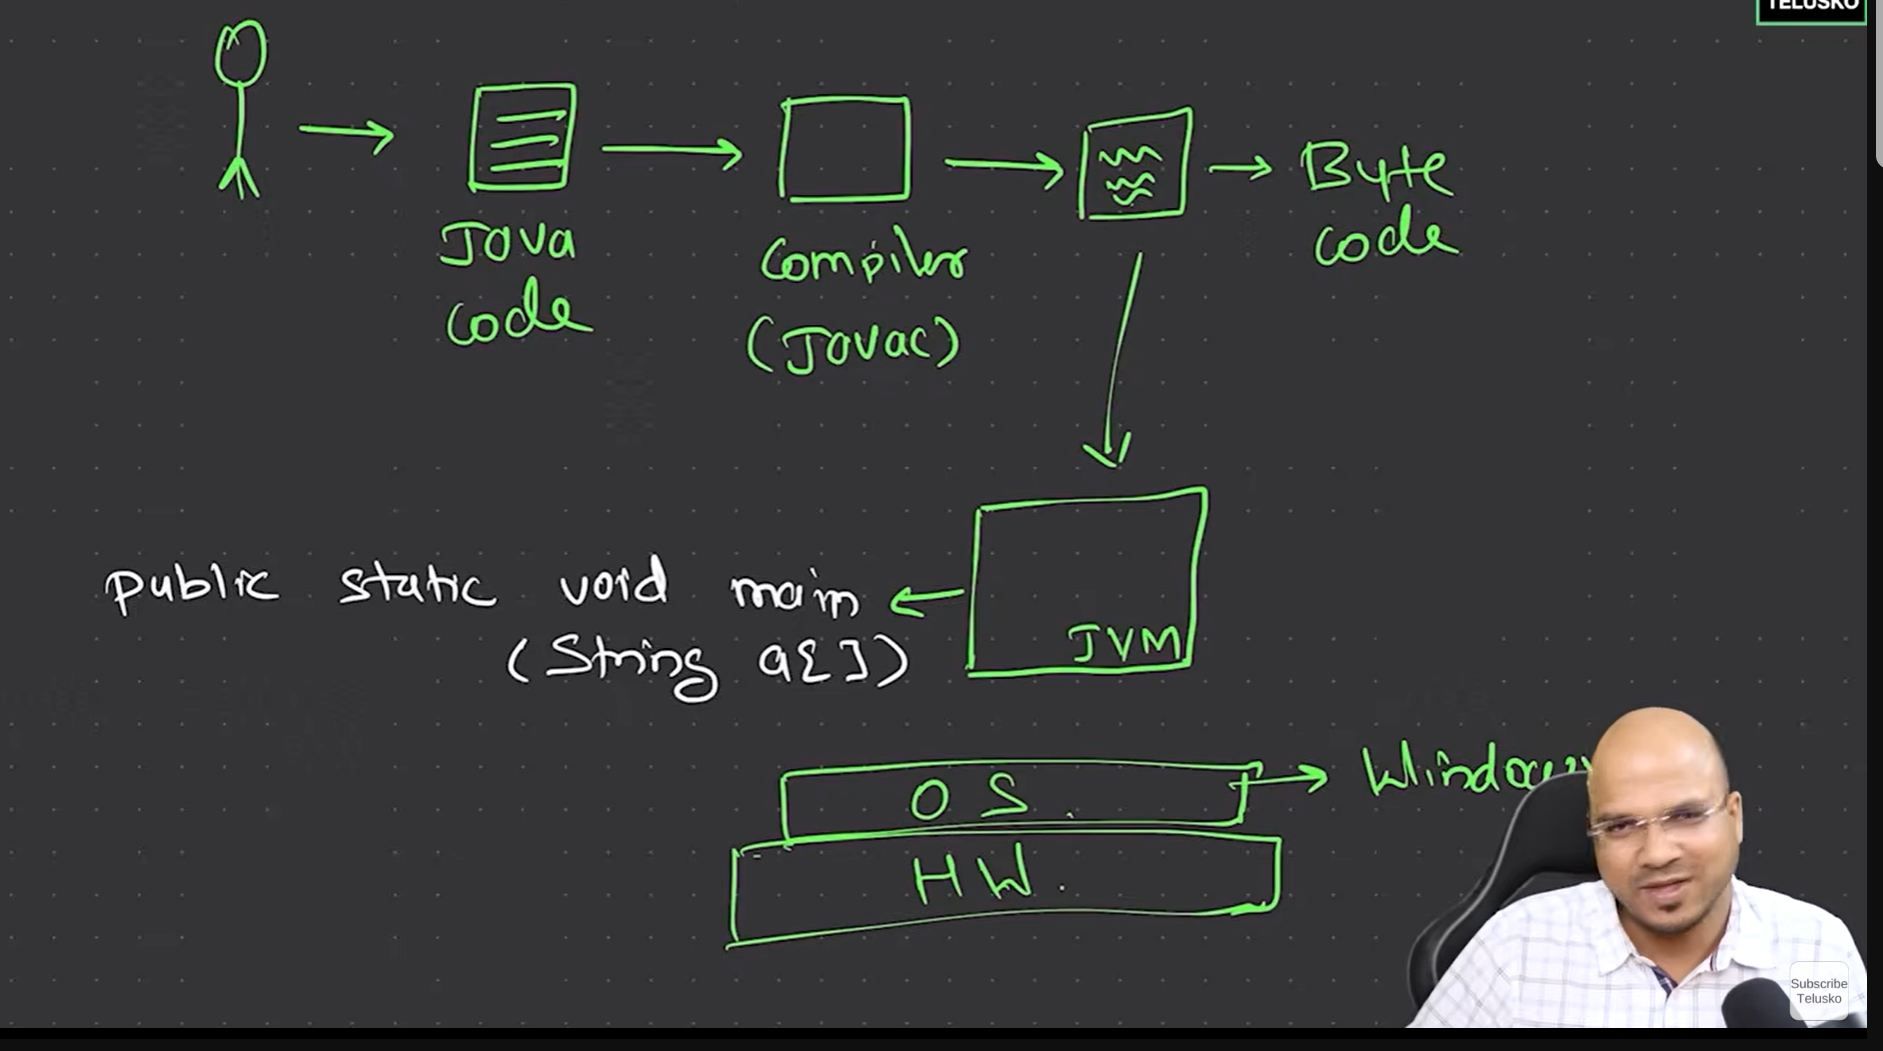 TELUSKO
Java
code
Compiler
(Javac)
Byte
code
public static void main
(String a[])
JVM
OS
HW
Subscribe
Telusko